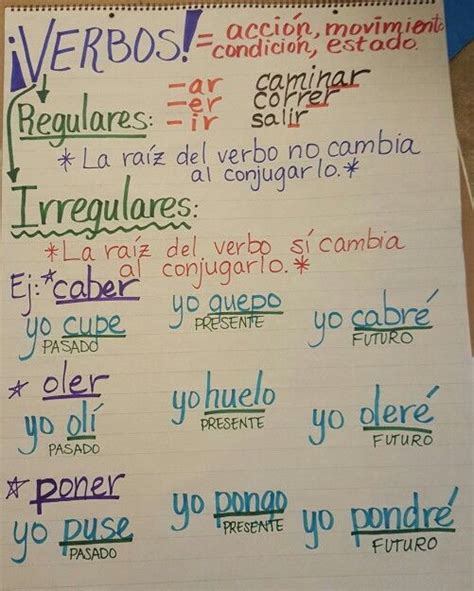 ¡VERBOS! = acción, movimiento
condición, estado.
-ar caminar
-er correr
Regulares: -ir salir
*La raíz del verbo no cambia
al conjugarlo.*
Irregulares:
*La raíz del verbo sí cambia
al conjugarlo.*
Ej:*caber
yo cupe yo quepo yo cabré
PASADO PRESENTE FUTURO
*oler
yo olí yo huelo yo oleré
PASADO PRESENTE FUTURO
*poner
yo puse yo pongo yo pondré
PASADO PRESENTE FUTURO